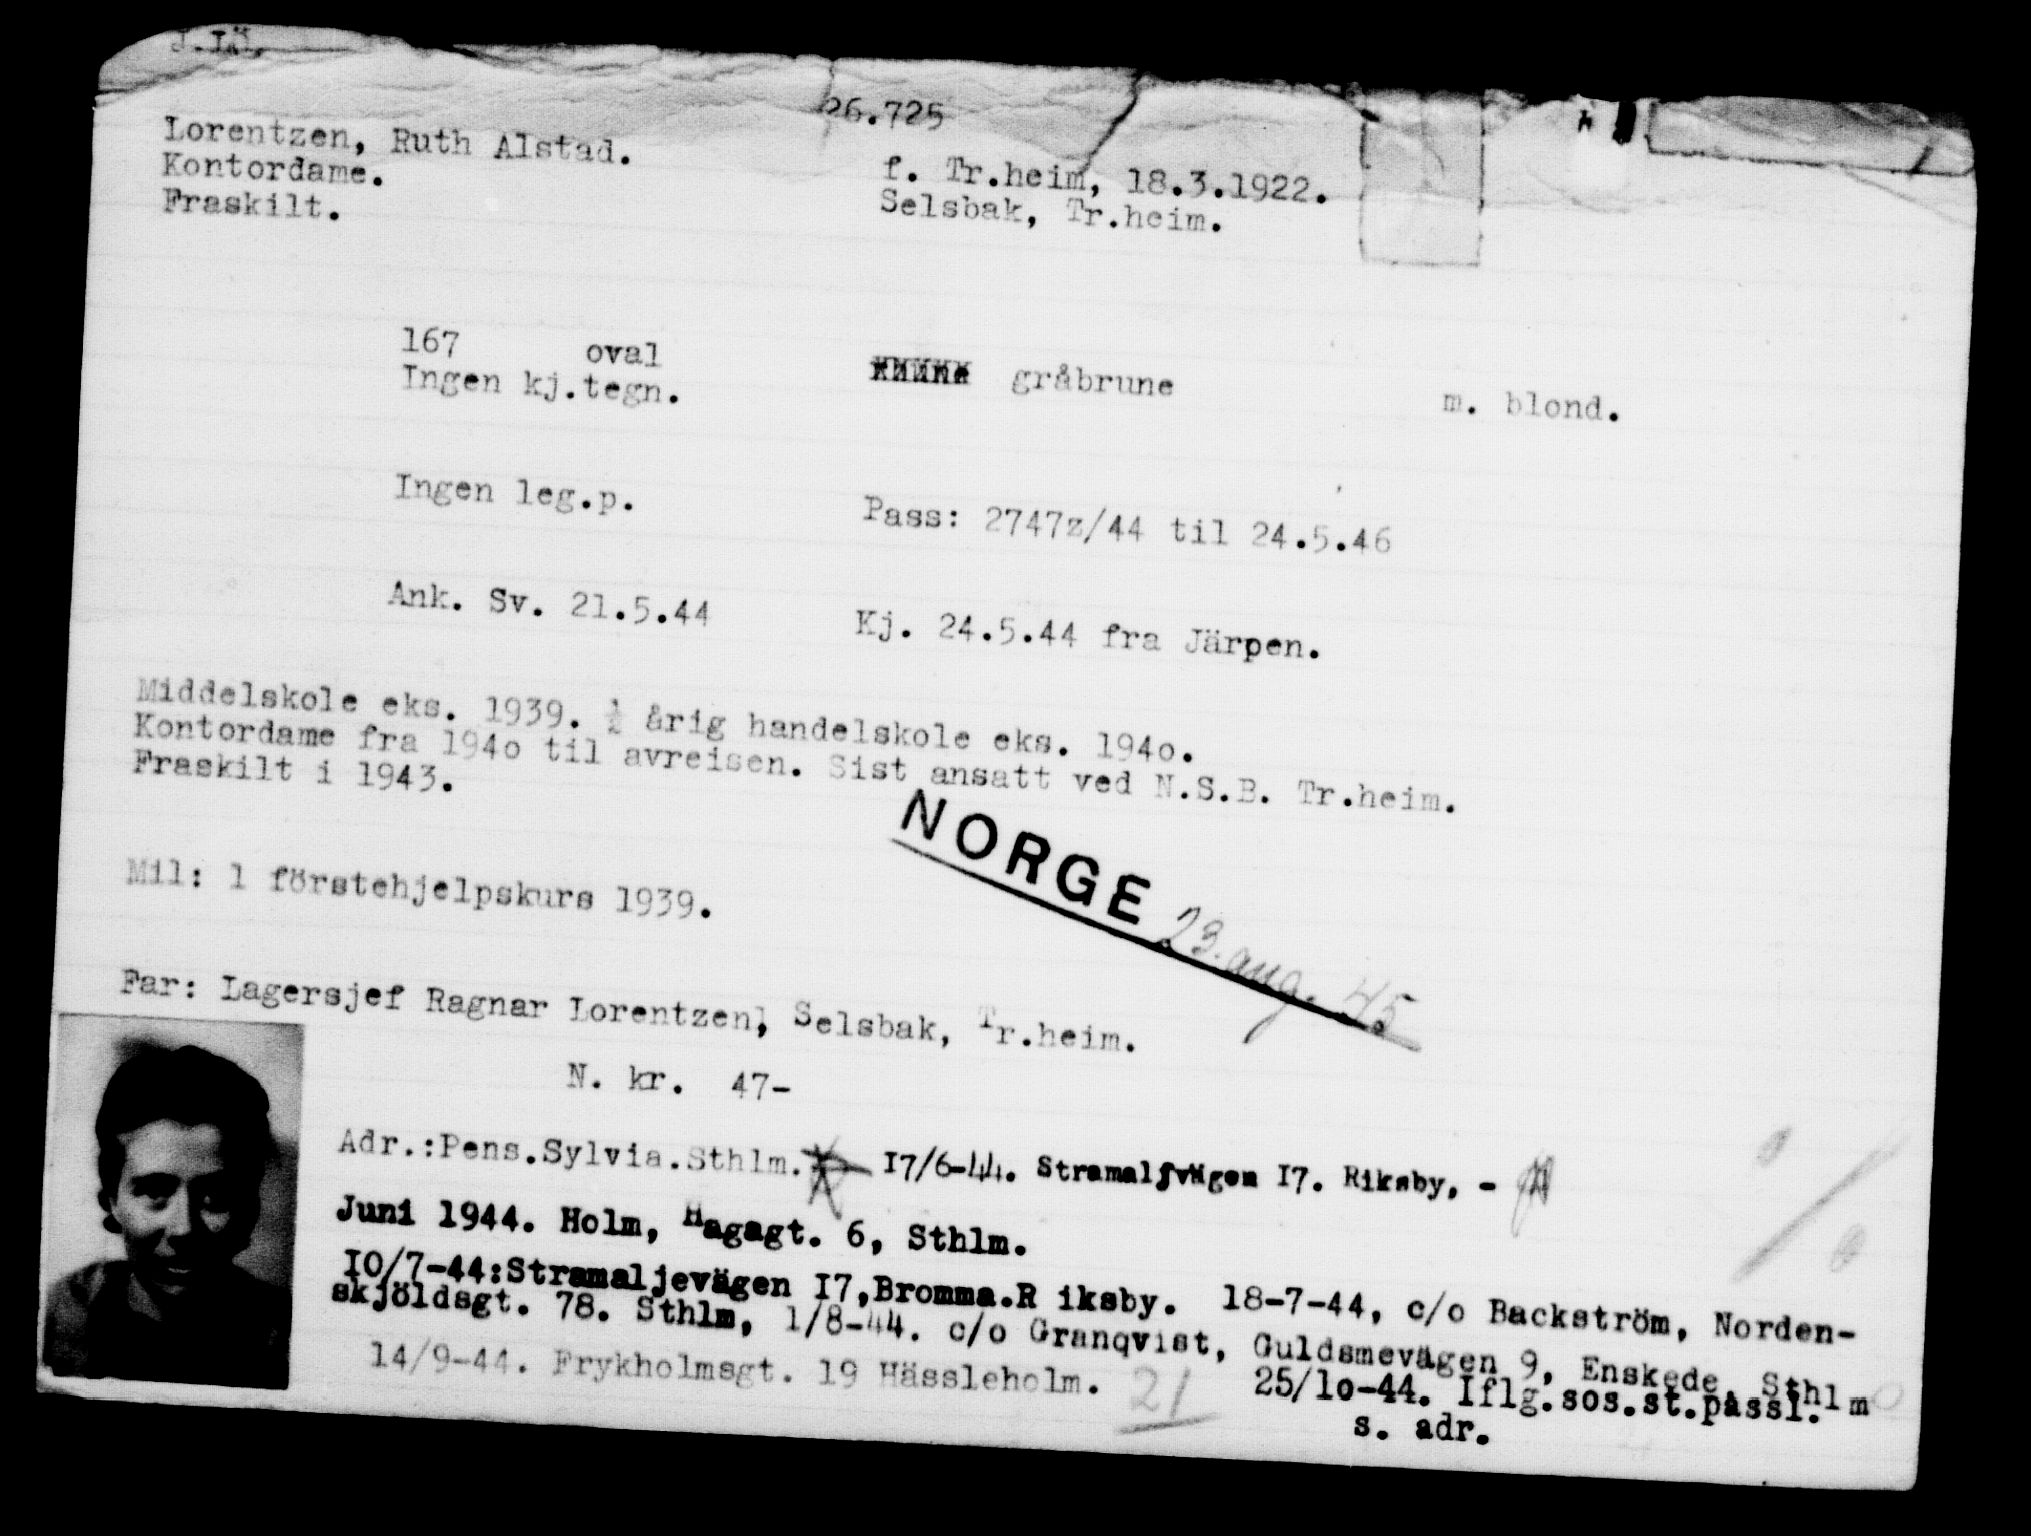 J.Lü.
26.725
Lorentzen, Ruth Alstad.
f. Tr.heim, 18.3.1922.
Kontordame.
Selsbak, Tr.heim.
Fraskilt.
167 oval gråbrune m. blond.
Ingen kj.tegn.
Ingen leg.p. Pass: 2747z/44 til 24.5.46
Ank. Sv. 21.5.44 Kj. 24.5.44 fra Järpen.
Middelskole eks. 1939. ½ årig handelskole eks. 194o.
Kontordame fra 194o til avreisen. Sist ansatt ved N.S.B. Tr.heim.
Fraskilt i 1943.
NORGE 23. aug. 45
Mil: 1 förstehjelpskurs 1939.
Far: Lagersjef Ragnar Lorentzen, Selsbak, Tr.heim.
N. kr. 47-
Adr.:Pens.Sylvia.Sthlm. I7/6-44. Stramaljvägen I7. Riksby, -
Juni 1944. Holm, Hagagt. 6, Sthlm.
IO/7-44:Stramaljevägen I7,Bromma.R iksby. 18-7-44, c/o Backström, Norden-
skjöldsgt. 78. Sthlm, 1/8-44. c/o Granqvist, Guldsmevägen 9, Enskede, Sthlm
14/9-44. Frykholmsgt. 19 Hässleholm. 21 25/1o-44. Iflg.sos.st.passl.
s. adr.